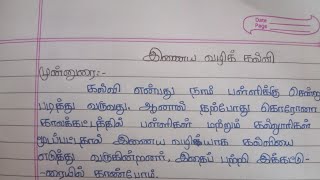 Date
Page
இணைய வழிக் கல்வி
முன்னுரை:-
கல்வி என்பது நாம் பள்ளிக்கு சென்று
படித்து வருவது. ஆனால் தற்போது கொரோனா
காலக்கட்டத்தில் பள்ளிகள் மற்றும் கல்லூரிகள்
மூடப்பட்டதால் இணைய வழியாக கல்வியை
எடுத்து வருகின்றனர். இதைப் பற்றி இக்கட்டு-
ரையில் காண்போம்.